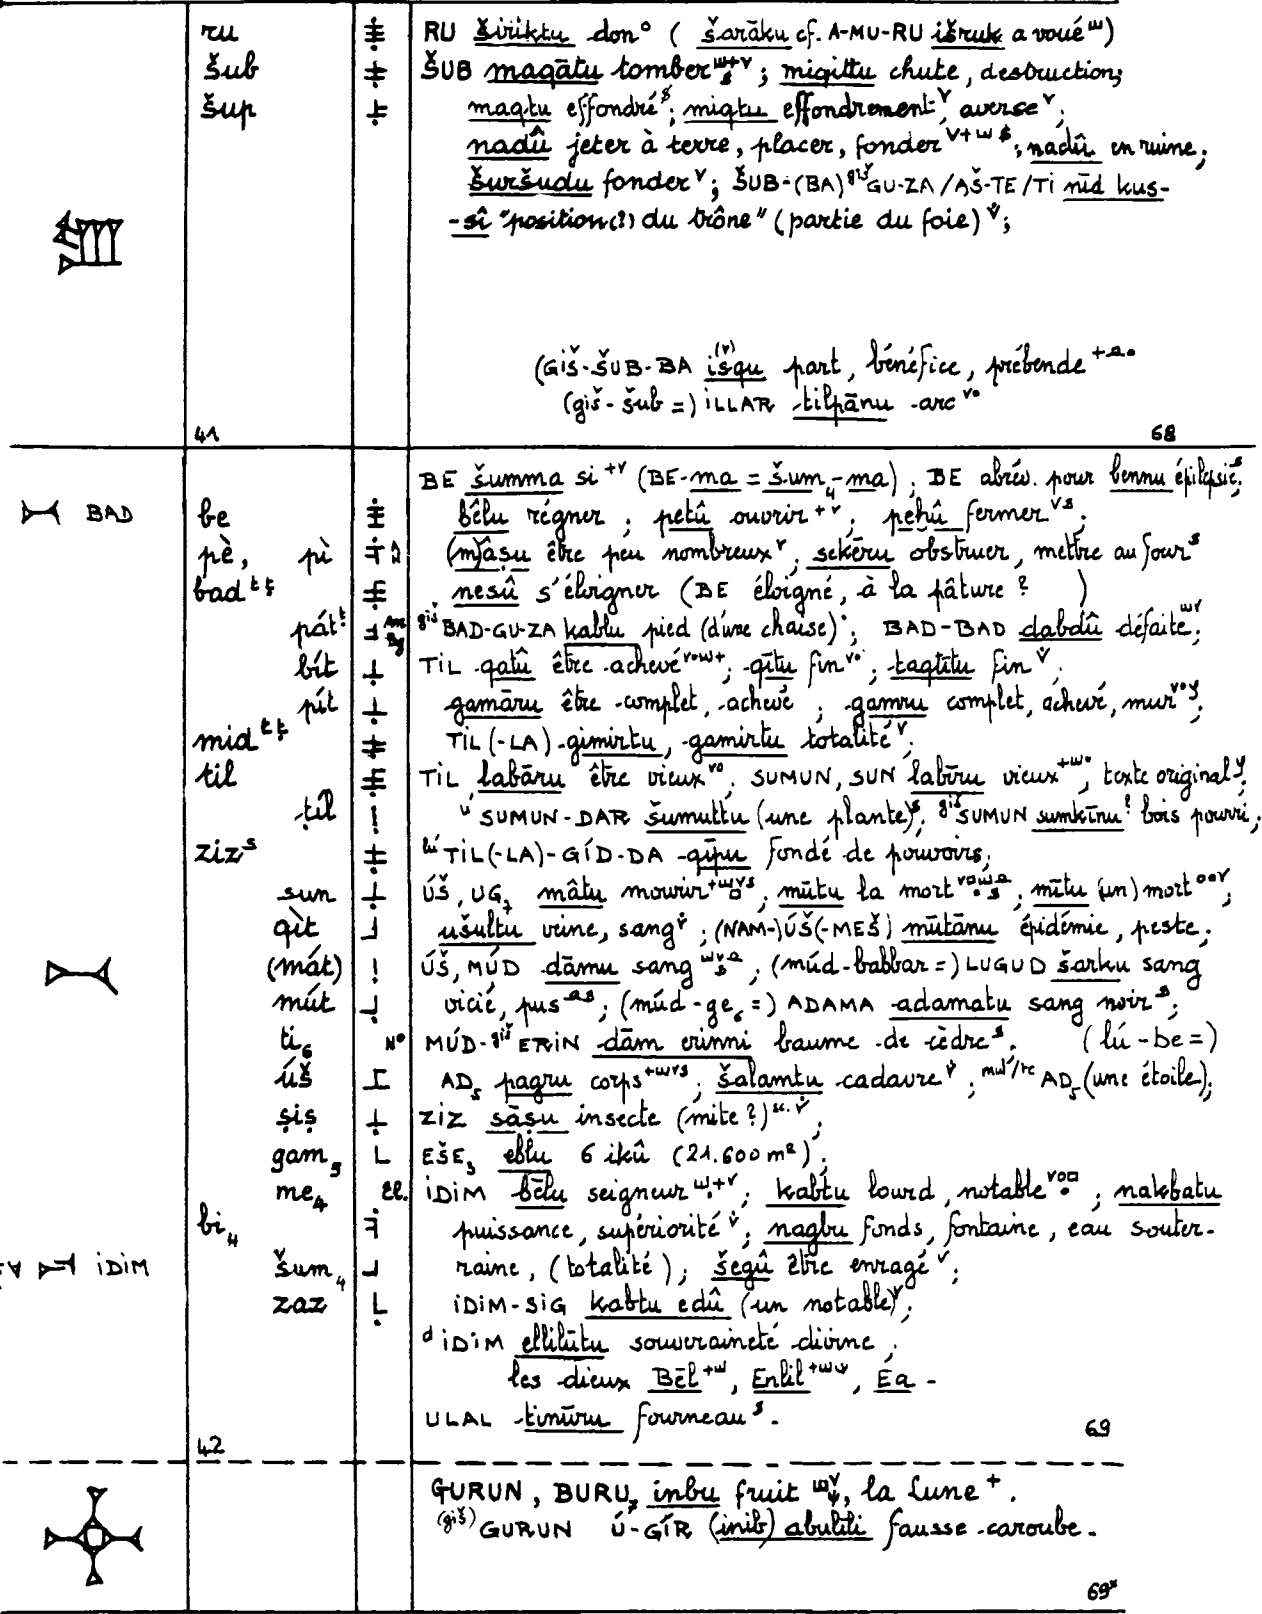 ru RU širiktu don° ( šarāku cf. A-MU-RU išruk a voué)
šub ŠUB maqātu tomber ; miqittu chute, destruction;
šup maqtu effondré ; miqtu effondrement, averse ;
nadû jeter à terre, placer, fonder ; nadû en ruine ;
šuršudu fonder ; ŠUB-(BA) giš GU-ZA/AŠ-TE/TI nīd kus-
-sî "position(?) du trône" (partie du foie) ;
(GIŠ-ŠUB-BA išqu part, bénéfice, prébende
(giš-šub =) ILLAR tilpānu arc
41 68
BE šumma si (BE-ma = šum₄-ma) ; BE abrév. pour bennu épilepsie ;
BAD be bêlu régner ; petû ouvrir ; pehû fermer ;
pè, pì (m)âṣu être peu nombreux ; sekēru obstruer, mettre au four
bad ṭ ṭ nesû s'éloigner (BE éloigné, à la pâture ? )
pát giš BAD-GU-ZA kablu pied (d'une chaise) ; BAD-BAD dabdû défaite ;
bít TIL qatû être achevé ; qītu fin ; taqtītu fin ;
pít gamāru être complet, achevé ; gamru complet, achevé, mur ;
mid ṭ ṭ TIL (-LA) gimirtu, gamirtu totalité ;
til TIL labāru être vieux ; SUMUN, SUN labīru vieux ; texte original ;
ṭíl ú SUMUN-DAR šumuttu (une plante) ; giš SUMUN sumkīnu ? bois pourri ;
ziz s lú TIL(-LA)-GÍD-DA qīpu fondé de pouvoirs ;
sun ÚŠ, UG₇ mâtu mourir ; mūtu la mort ; mītu (un) mort ;
qìt ušultu veine, sang ; (NAM-)ÚŠ(-MEŠ) mūtānu épidémie, peste ;
(mát) ÚŠ, MÚD dāmu sang ; (múd-babbar =) LUGUD šarku sang
mút vicié, pus ; (múd-ge₆ =) ADAMA adamatu sang noir ;
ti₆ N° MÚD-giš ERIN dām erinni baume de cèdre . (lú-be =)
úš AD₅ pagru corps ; šalamtu cadavre ; mul/te AD₅ (une étoile) ;
ṣiṣ ZIZ sāsu insecte (mite ?) ;
gam₅ EŠE₃ eblu 6 ikû (21.600 m²) ;
me₄ El. IDIM bēlu seigneur ; kabtu lourd, notable ; nakbatu
bi₄ puissance, supériorité ; nagbu fonds, fontaine, eau souter-
IDIM šum₄ raine, (totalité) ; šegû être enragé ;
zaz IDIM-SIG kabtu edû (un notable) ;
d IDIM ellilūtu souveraineté divine ;
les dieux Bēl, Enlil, Éa -
ULAL tinūru fourneau .
42 69
GURUN, BURU₇ inbu fruit , la Lune + .
(giš) GURUN Ú-GÍR (inib) abulili fausse caroube .
69ˣ